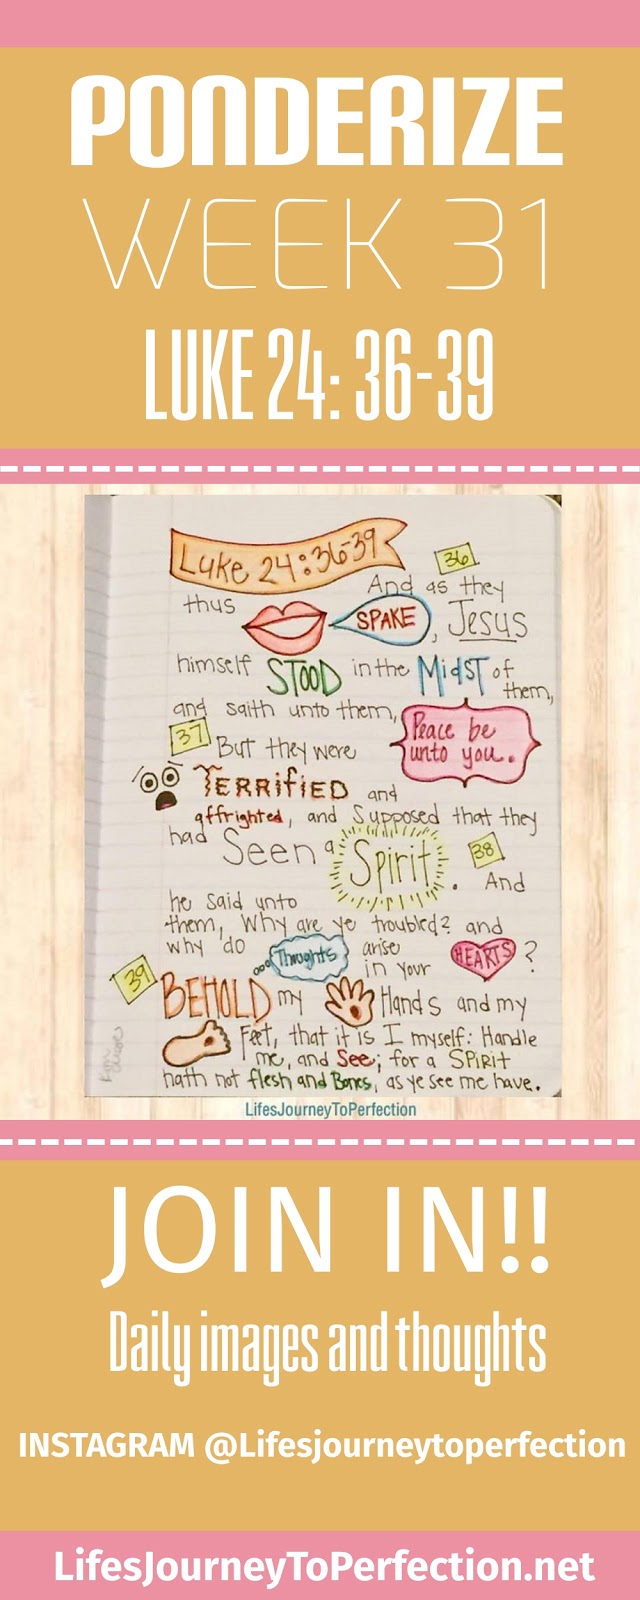 PONDERIZE
WEEK 31
LUKE 24: 36-39
Luke 24:36-39
36
And as they
thus SPAKE, Jesus
himself STOOD in the MIDST of
them,
and saith unto them, Peace be
unto you.
37 But they were
TERRIFIED and
affrighted, and Supposed that they
had Seen a Spirit. 38 And
he said unto
them, Why are ye troubled? and
why do Thoughts arise
in your HEARTS?
39 BEHOLD my Hands and my
Feet, that it is I myself: Handle
me, and See; for a SPIRIT
hath not flesh and Bones, as ye see me have.
LifesJourneyToPerfection
JOIN IN!!
Daily images and thoughts
INSTAGRAM @Lifesjourneytoperfection
LifesJourneyToPerfection.net